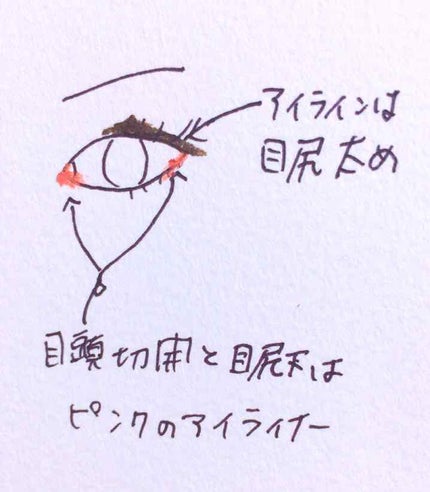 アイラインは
目尻太め
目頭切開と目尻下は
ピンクのアイライナー